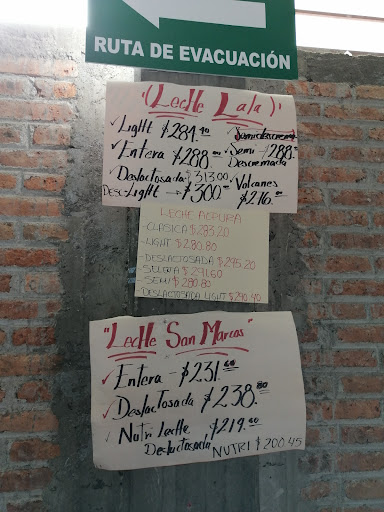 RUTA DE EVACUACIÓN
"(Leche Lala)"
✓ Light $284.40
✓ Entera $288.00 ✓ Semi - $288.00
Descremada
✓ Deslactosada $313.00
Desc-Light → $300.00
Volcanes
$216.00
LECHE ALPURA
-CLASICA $283.20
-LIGHT $280.80
-DESLACTOSADA $295.20
-SELECTA $291.60
-SEMI $280.80
-DESLACTOSADA LIGHT $290.40
"Leche San Marcos"
✓ Entera - $231.60
✓ Deslactosada $238.80
✓ Nutri Leche $219.00
Deslactosada NUTRI $200.45